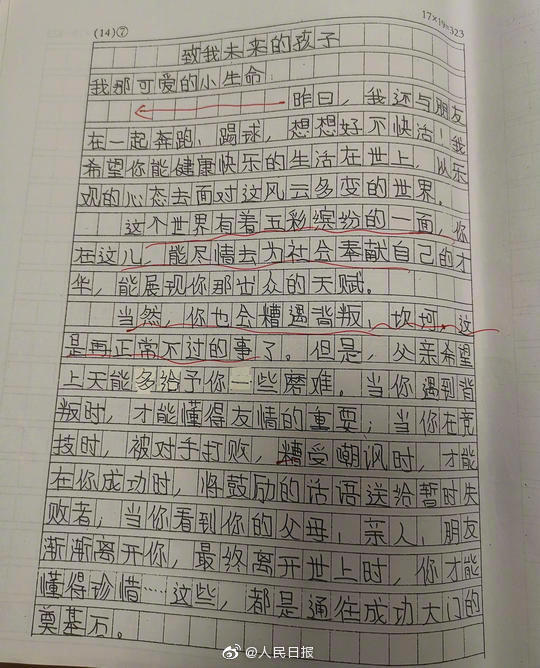 (14)⑦
17×19=323
致我未来的孩子
我那可爱的小生命:
昨日，我还与朋友
在一起奔跑、踢球，想想好不快活！我
希望你能健康快乐的生活在世上，从乐
观的心态去面对这风云多变的世界。
这个世界有着五彩缤纷的一面，你
在这儿，能尽情去为社会奉献自己的才
华，能展现你那出众的天赋。
当然，你也会糟遇背叛、坎坷，这
是再正常不过的事了。但是，父亲希望
上天能多给予你一些磨难。当你遇到背
叛时，才能懂得友情的重要；当你在竞
技时，被对手打败，糟受嘲讽时，才能
在你成功时，将鼓励的话语送给暂时失
败者；当你看到你的父母，亲人，朋友
渐渐离开你，最终离开世上时，你才能
懂得珍惜……这些，都是通往成功大门的
奠基石。
@人民日报